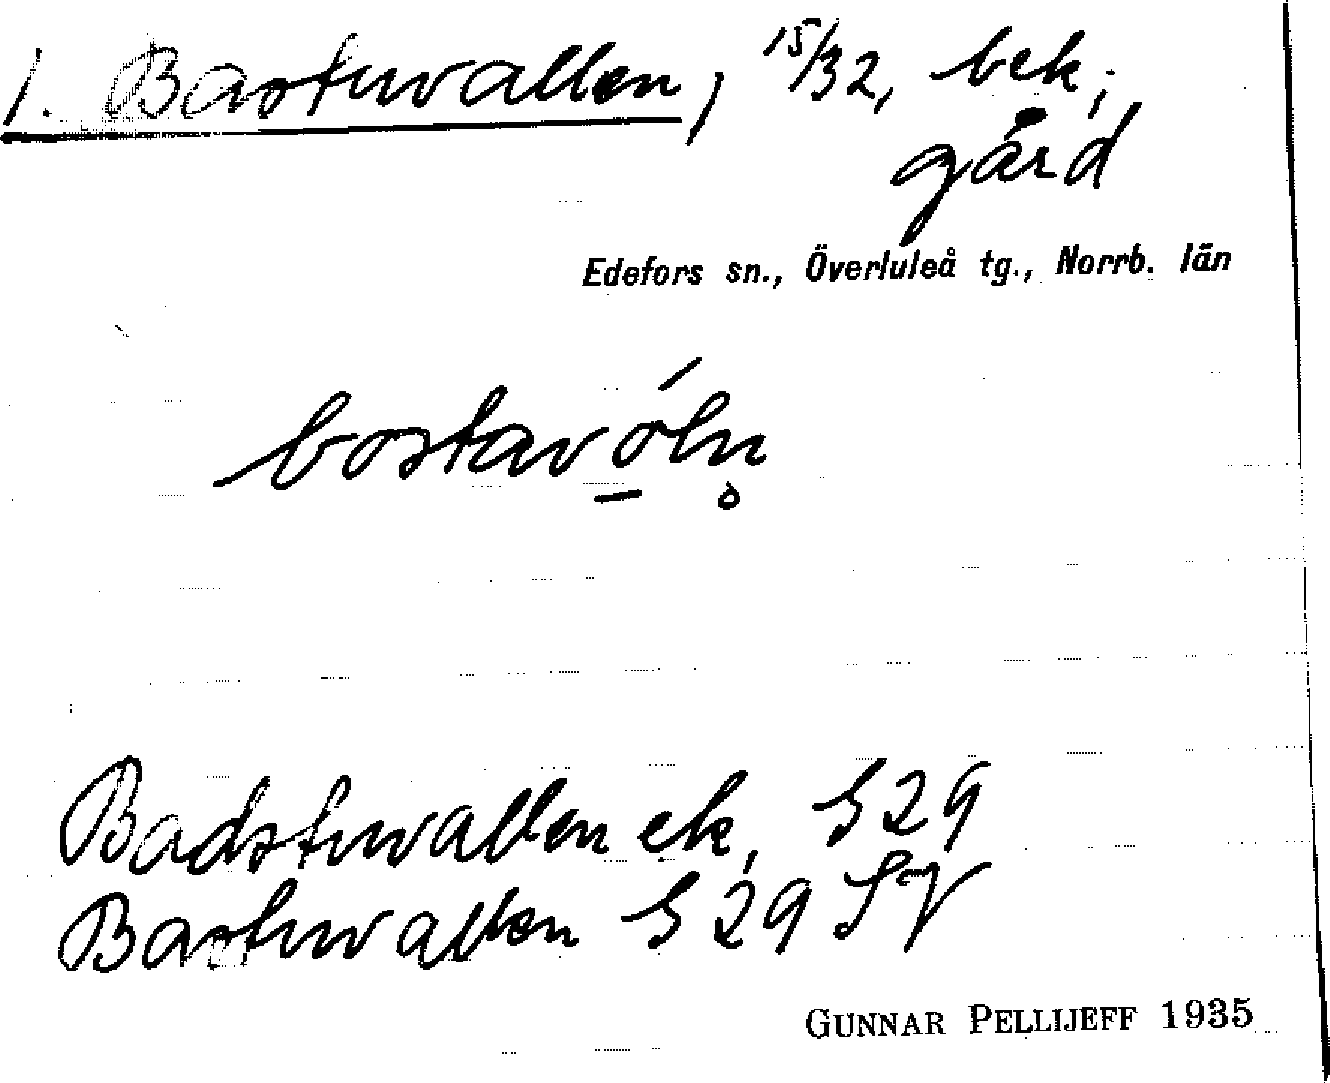 1. Bastuvallen, 15/32, bek.
gård
Edefors sn., Överluleå tg., Norrb. län
bostavóln̥
Badstuvallen ek, S29
Bastuvallen S29 SV
GUNNAR PELLIJEFF 1935